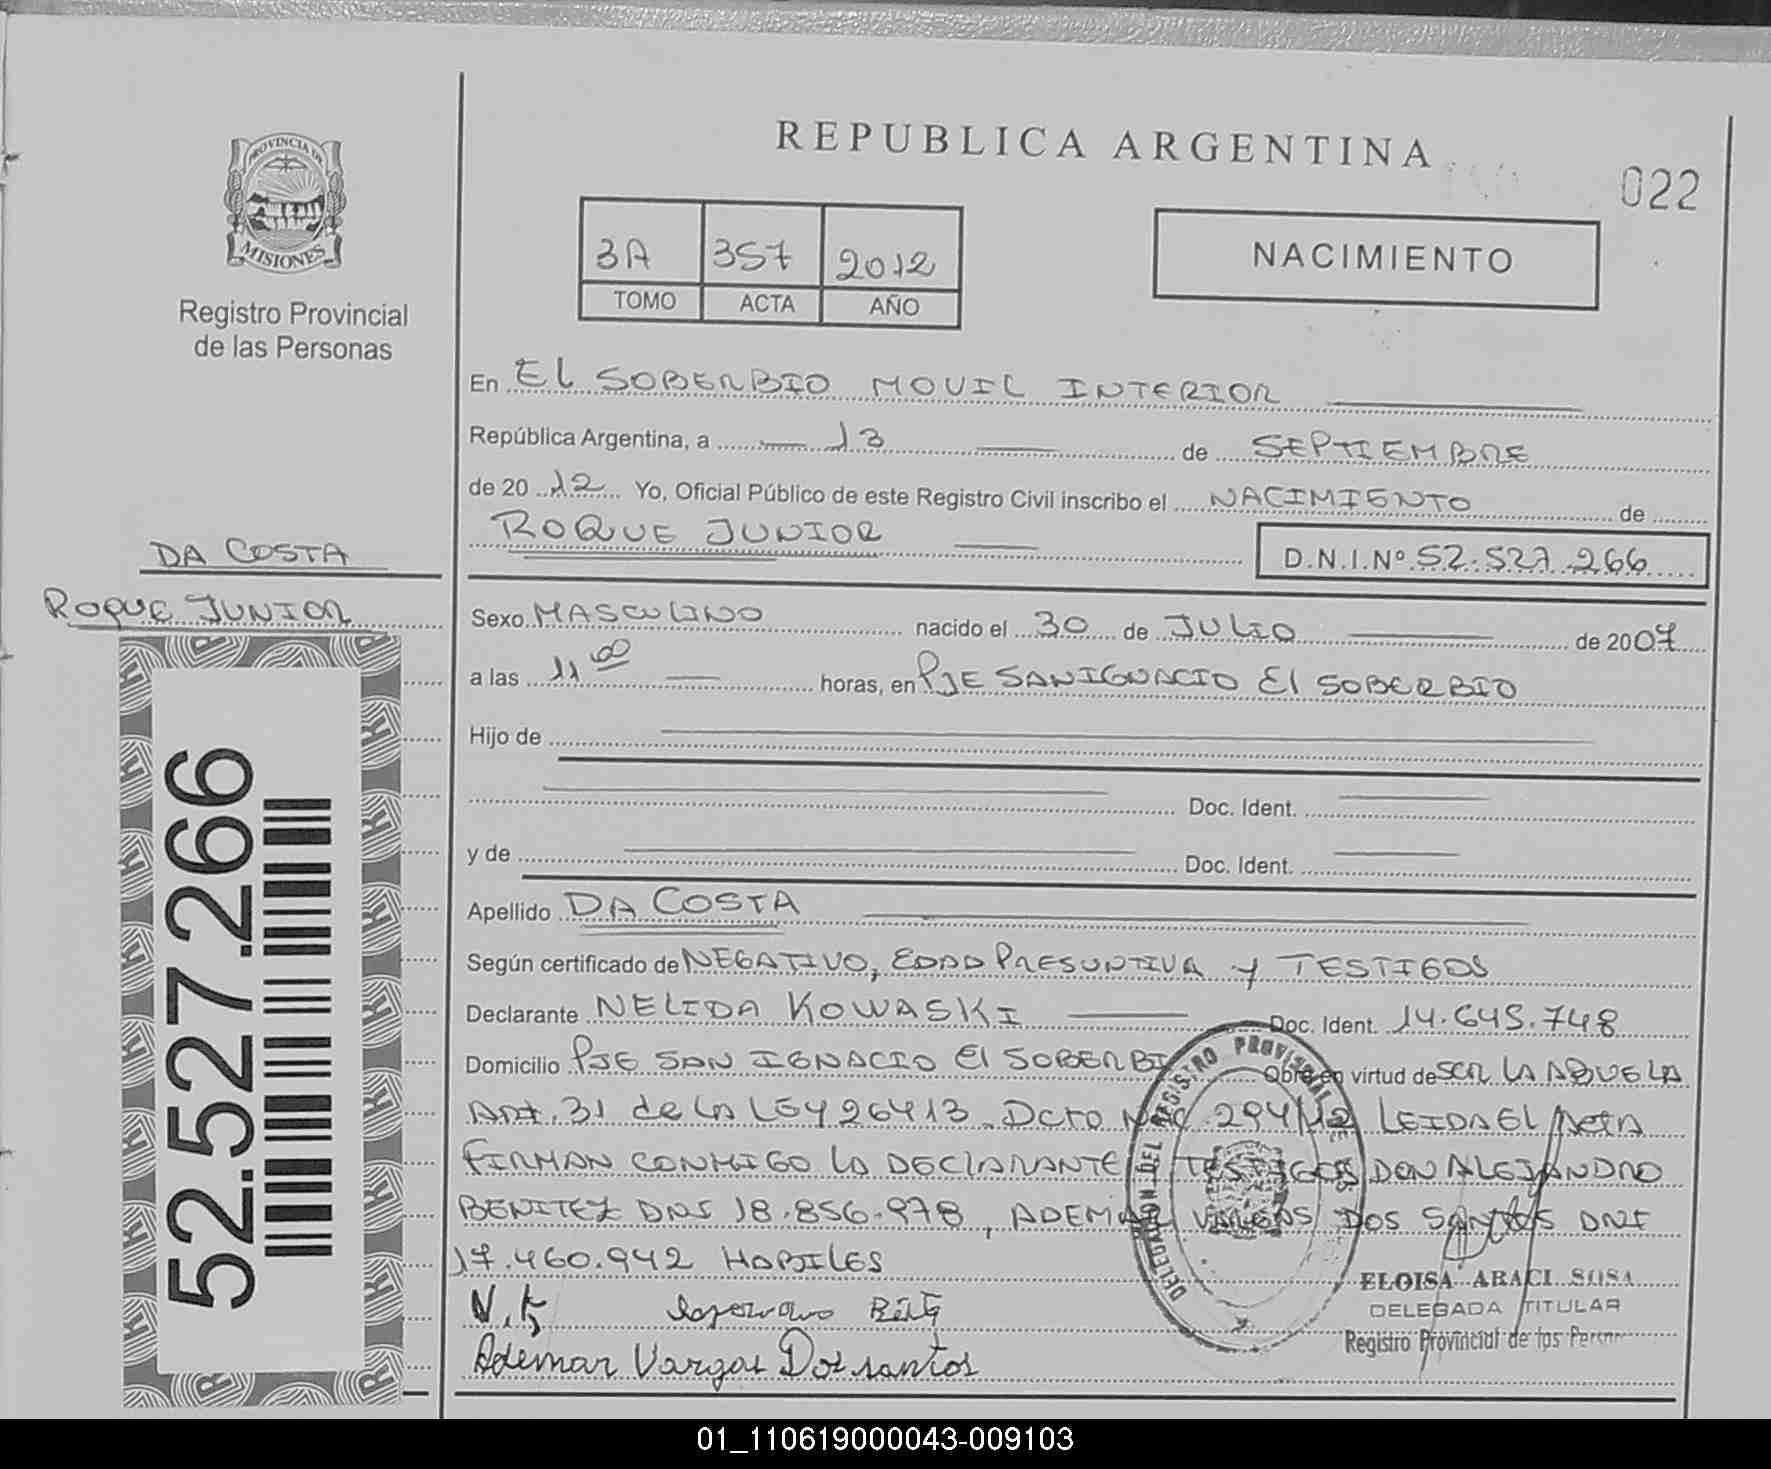 REPUBLICA ARGENTINA
022
PROVINCIA DE
MISIONES
Registro Provincial
de las Personas
3A 357 2012
TOMO ACTA AÑO
NACIMIENTO
En EL SOBERBIO MOVIL INTERIOR
República Argentina, a 13 de SEPTIEMBRE
de 20 12 Yo, Oficial Público de este Registro Civil inscribo el NACIMIENTO de
ROQUE JUNIOR
D.N.I.Nº 52.527.266
DA COSTA
ROQUE JUNIOR
Sexo MASCULINO nacido el 30 de JULIO de 2007
a las 11 00 horas, en PJE SAN IGNACIO El SOBERBIO
Hijo de
Doc. Ident.
y de Doc. Ident.
Apellido DA COSTA
Según certificado de NEGATIVO, EDAD PRESUNTIVA y TESTIGOS
Declarante NELIDA KOWASKI Doc. Ident. 14.645.748
Domicilio PJE SAN IGNACIO El SOBERBI Obre en virtud de SER LA ABUELA
ART. 31 de la LEY 26413 Dcto Nac 294/12 LEIDA EL ACTA
FIRMAN CONMIGO LA DECLARANTE TESTIGOS DON ALEJANDRO
BENITEZ DNI 18.856.978, ADEMAR VARGAS DOS SANTOS DNI
17.460.942 HABILES
N.K
Ademar Vargas Dos santos
DELEGACION DEL REGISTRO PROVINCIAL DE
ELOISA ARACI SOSA
DELEGADA TITULAR
Registro Provincial de las
52.527.266
01_110619000043-009103